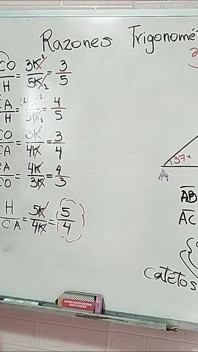 Razones Trigonomé
CO/H = 3K/5K = 3/5
CA/H = 4K/5K = 4/5
CO/CA = 3K/4K = 3/4
CA/CO = 4K/3K = 4/3
H/CA = 5K/4K = 5/4
37°
A
AB
AC
Catetos